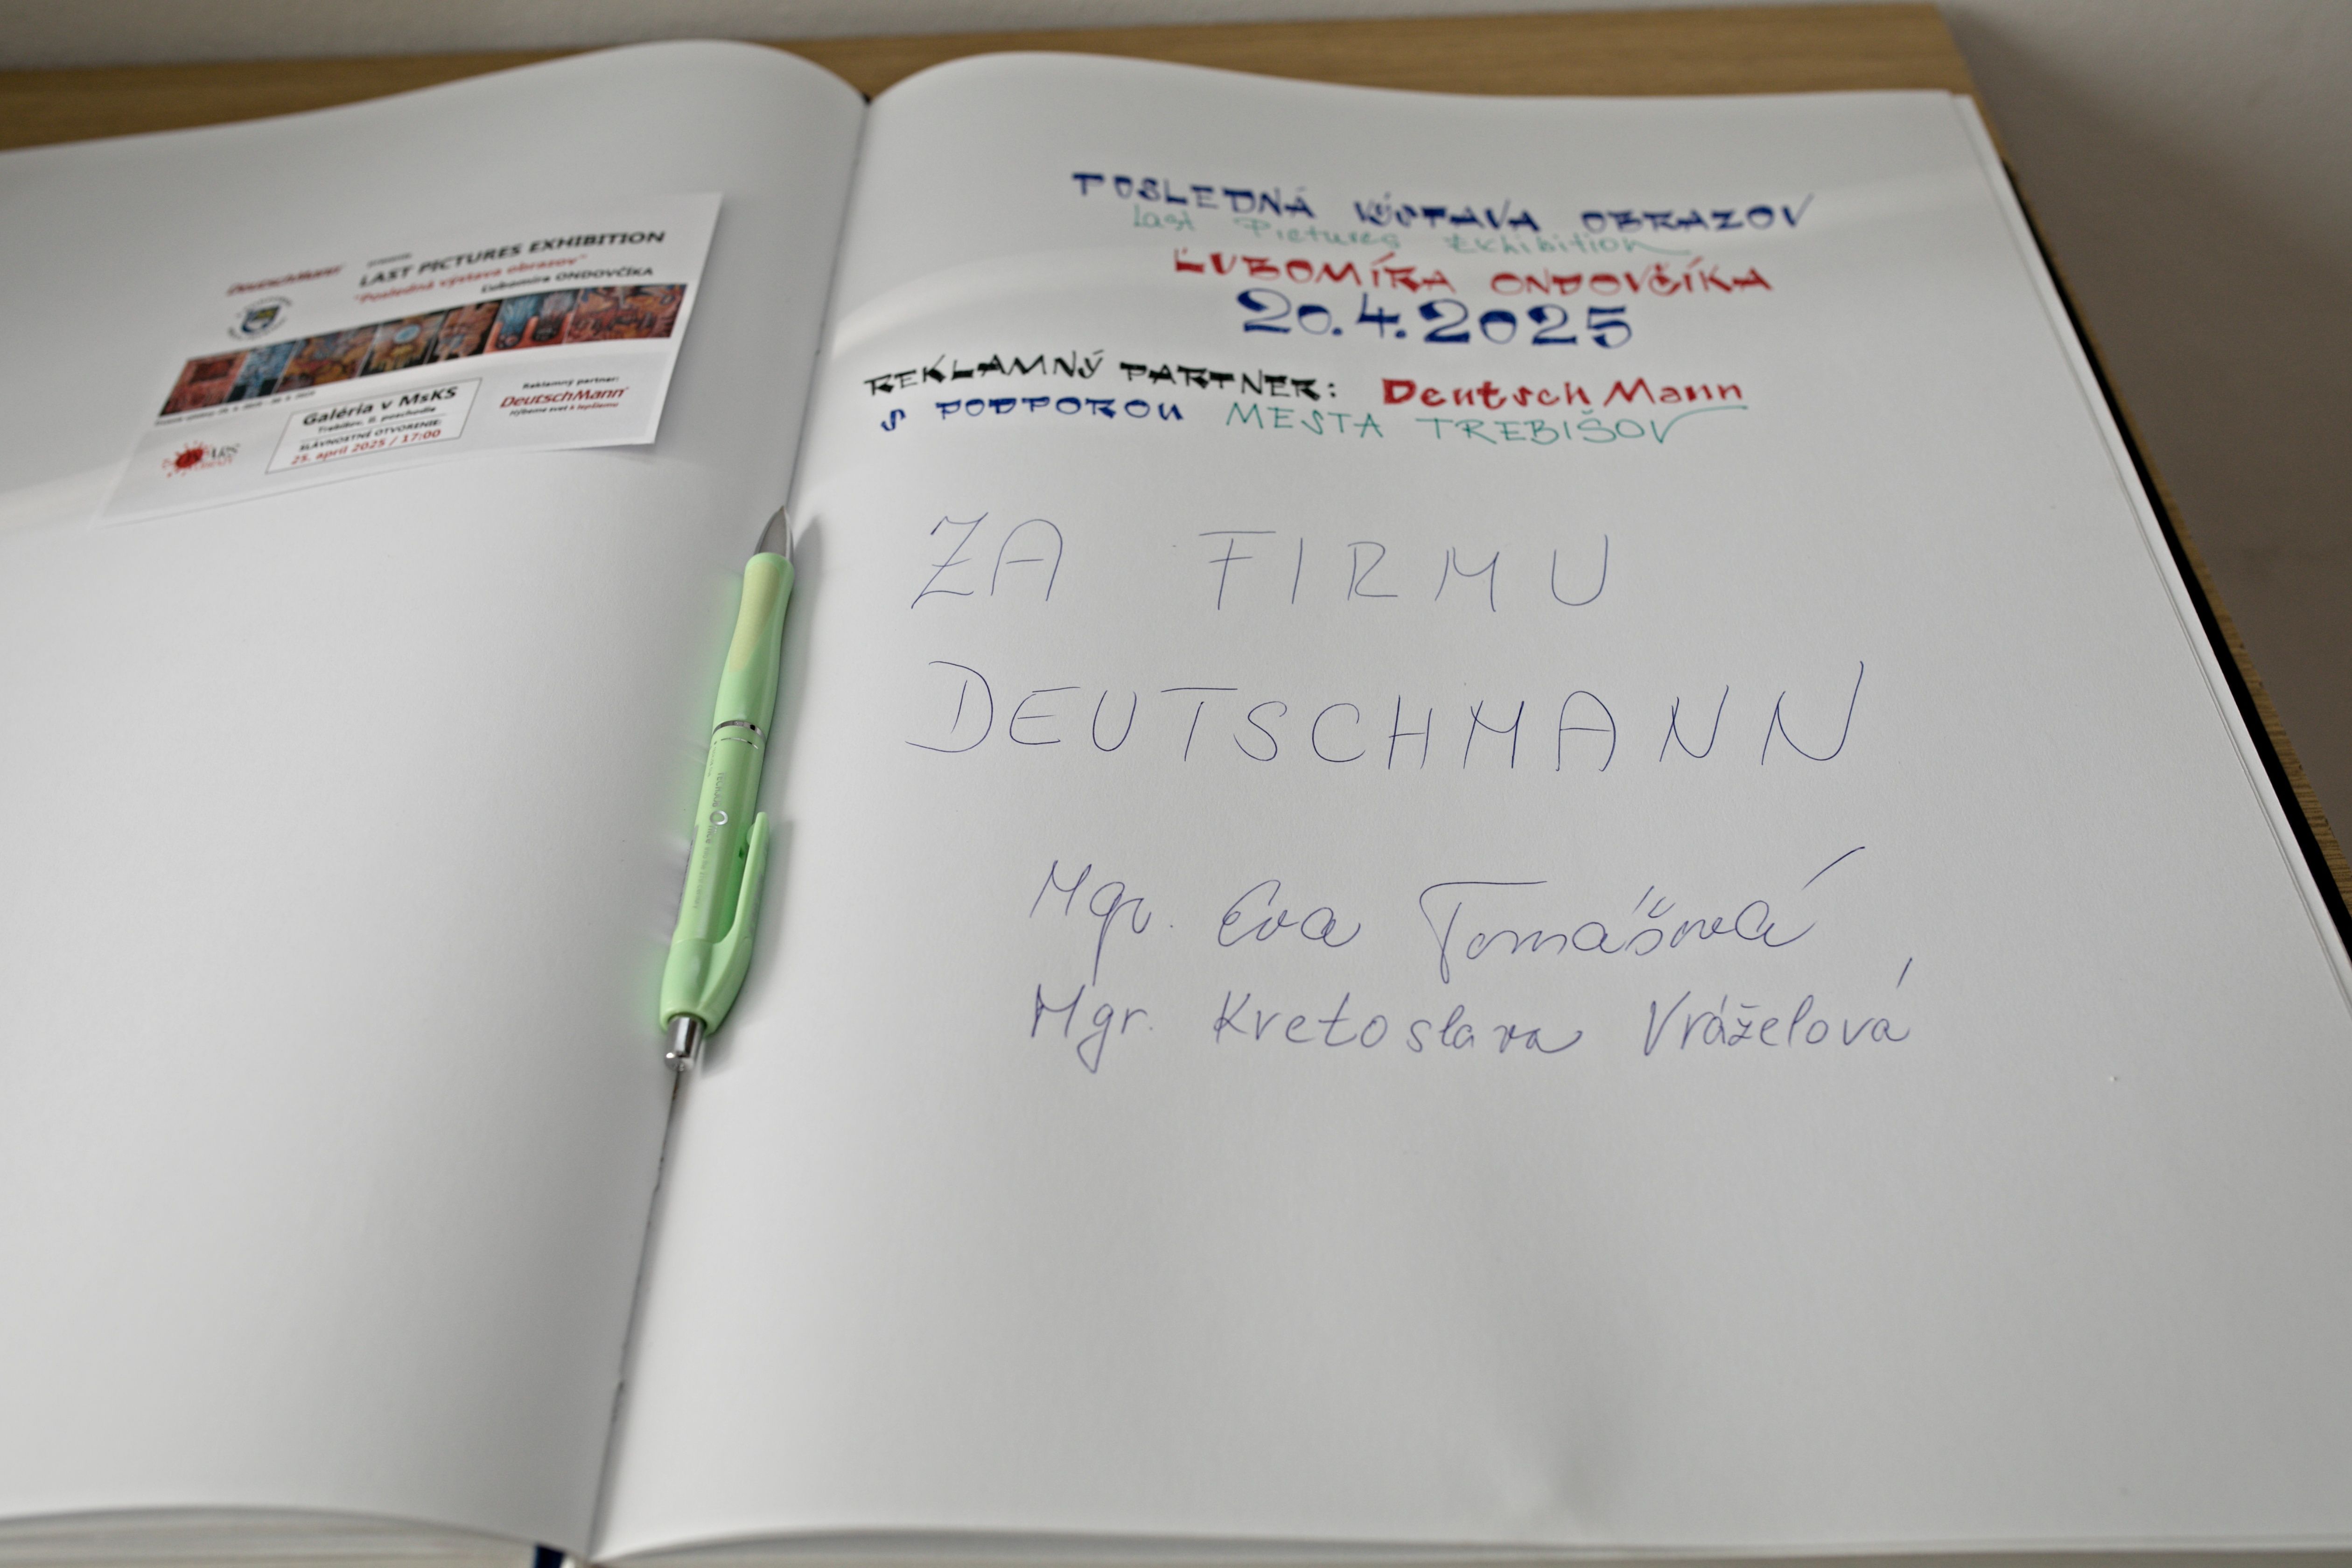 DeutschMann
LAST PICTURES EXHIBITION
"Posledná výstava obrazov"
Ľubomíra ONDOVČÍKA
Galéria v MsKS
Trebišov, II. poschodie
SLÁVNOSTNÉ OTVORENIE:
25. apríl 2025 / 17:00
Reklamný partner:
DeutschMann
ARS
POSLEDNÁ VÝSTAVA OBRAZOV
Last Pictures Exhibition
ĽUBOMÍRA ONDOVČÍKA
20.4.2025
REKLAMNÝ PARTNER: DeutschMann
S PODPOROU MESTA TREBIŠOV
ZA FIRMU
DEUTSCHMANN
Mgr. Eva Tomášová
Mgr. Kvetoslava Vráželová